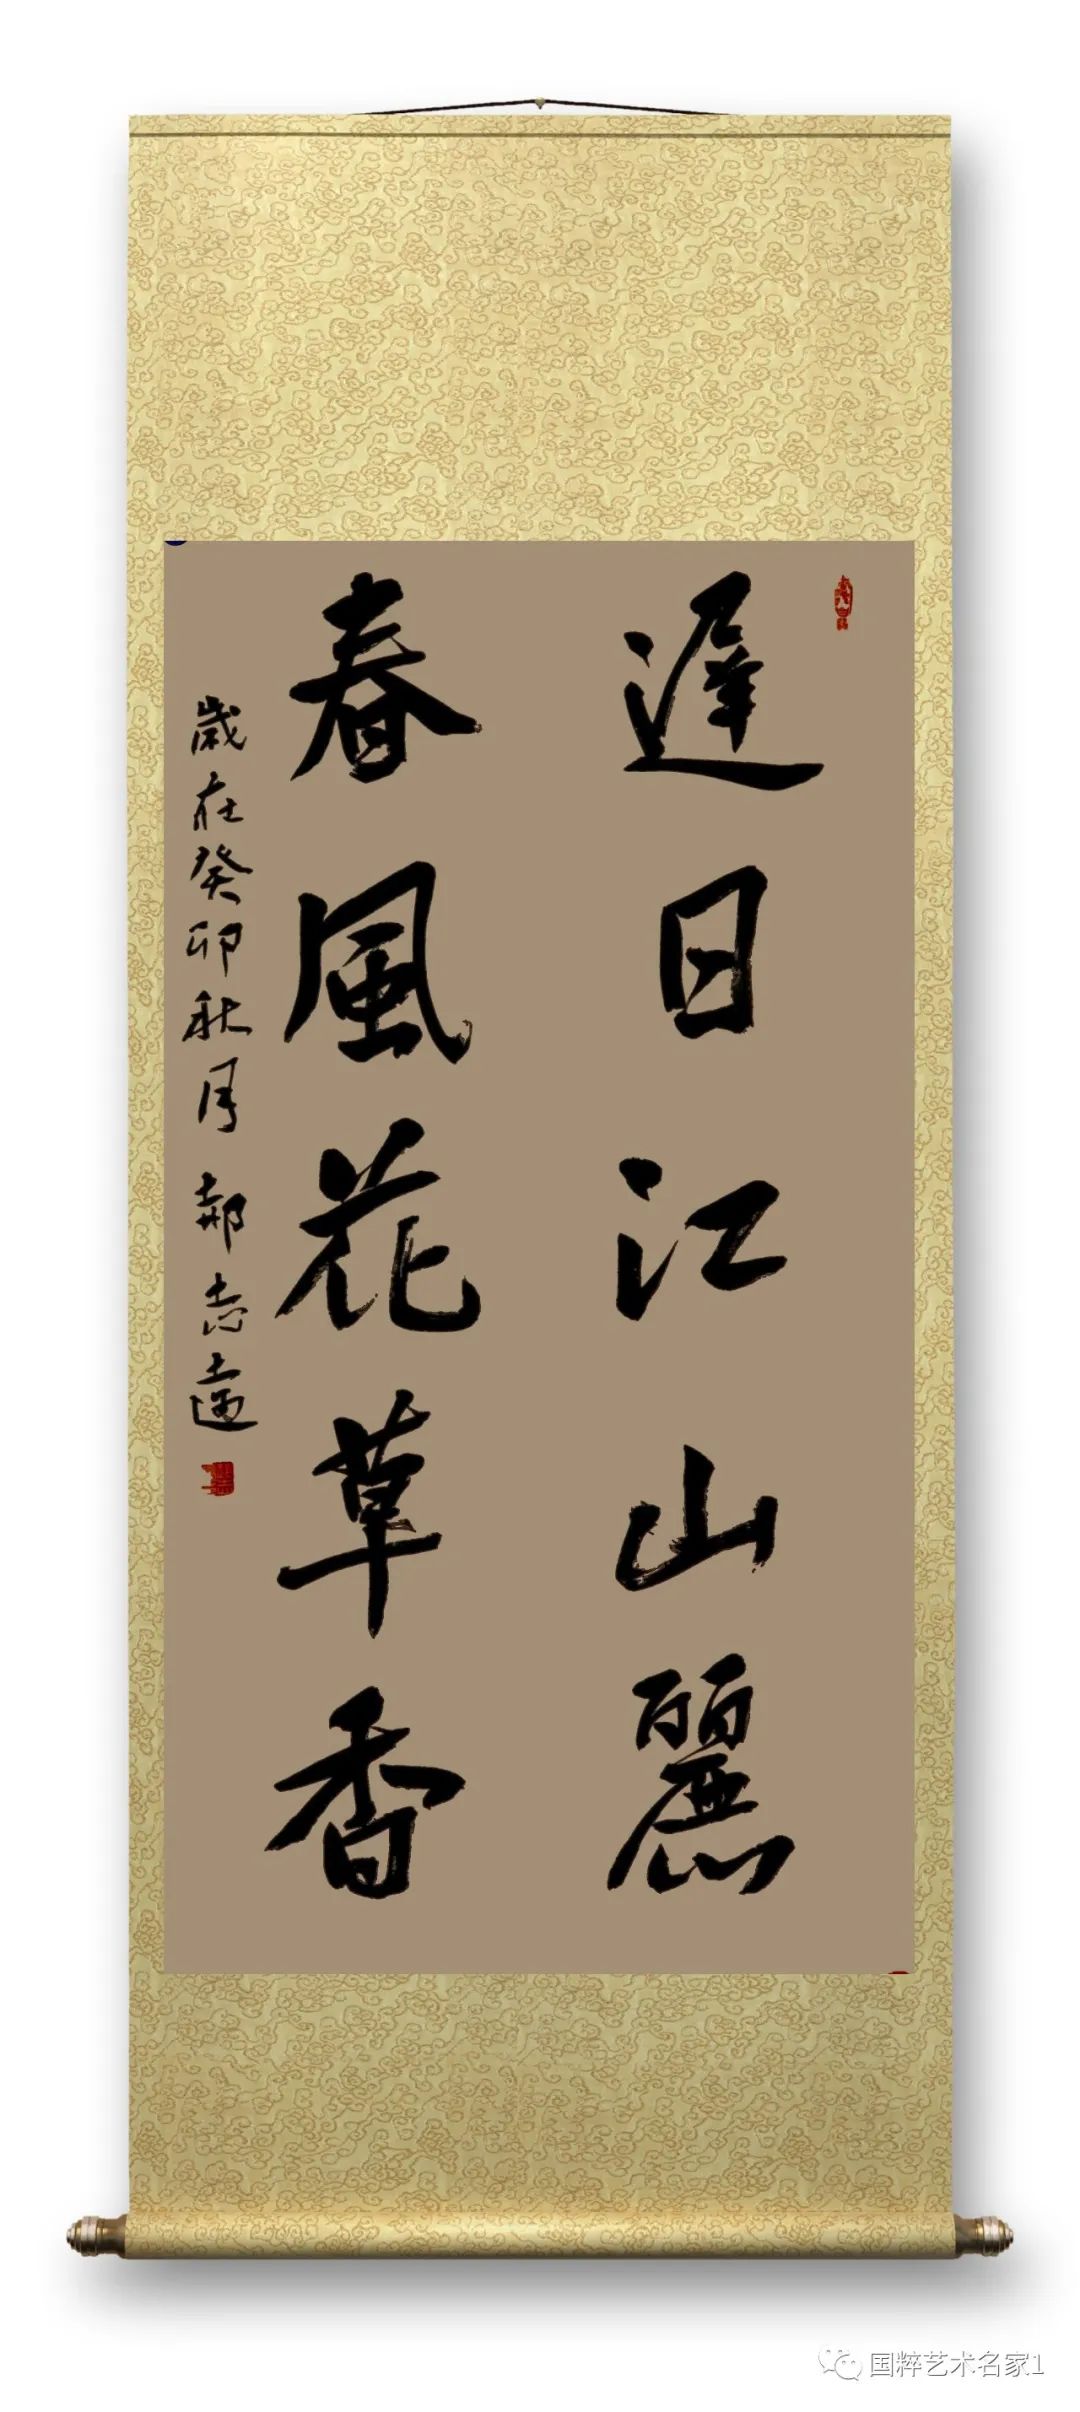 遲日江山麗
春風花草香
歲在癸卯秋月 郝志遠
国粹艺术名家1